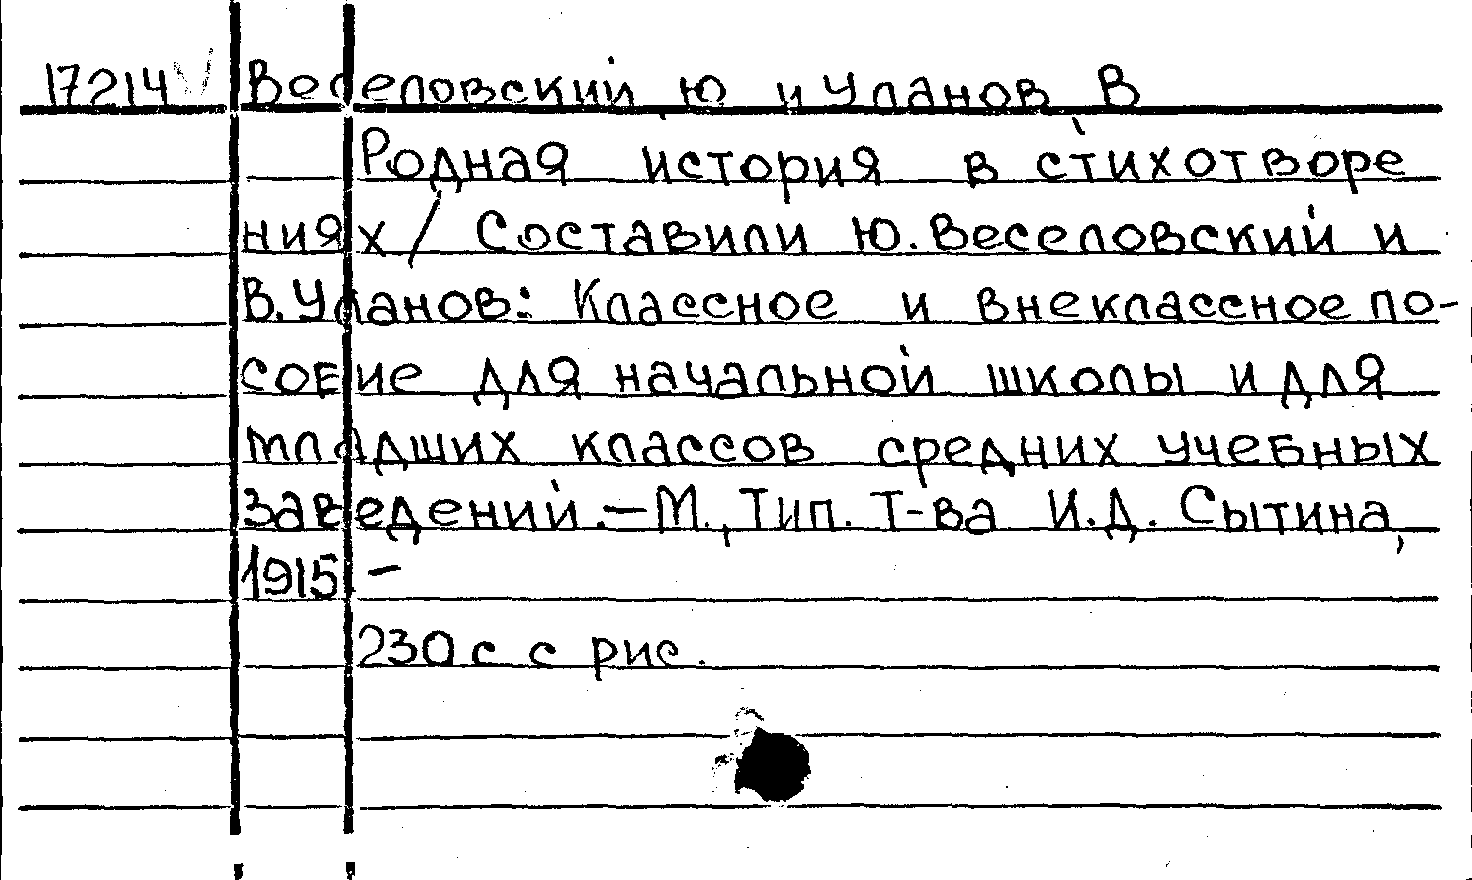 17214 V Веселовский Ю и Уланов В
Родная история в стихотворе
ниях / Составили Ю. Веселовский и
В. Уланов: Классное и внеклассное по-
собие для начальной школы и для
младших классов средних учебных
заведений. — М., Тип. Т-ва И.Д. Сытина,
1915 -
230 с с рис.